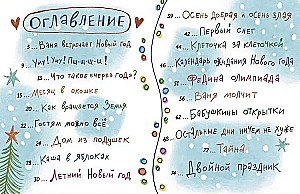 ОГЛАВЛЕНИЕ
5 ... Ваня встречает Новый год
9 ... Уму! Уму! Пи-и-и-и!
13 ... Что такое через год?
15 ... Месяц в окошке
20 ... Как вращается Земля
22 ... Гостям можно всё
24 ... Дом из подушек
28 ... Каша в яблоках
30 ... Летний Новый год
39 ... Осень добрая и осень злая
42 ... Первый снег
44 ... Клеточка за клеточкой
46 ... Календарь ожидания Нового года
52 ... Федина олимпиада
56 ... Ваня молчит
62 ... Бабушкины открытки
68 ... Остальные дни ничем не хуже
72 ... Тайна
74 ... Двойной праздник